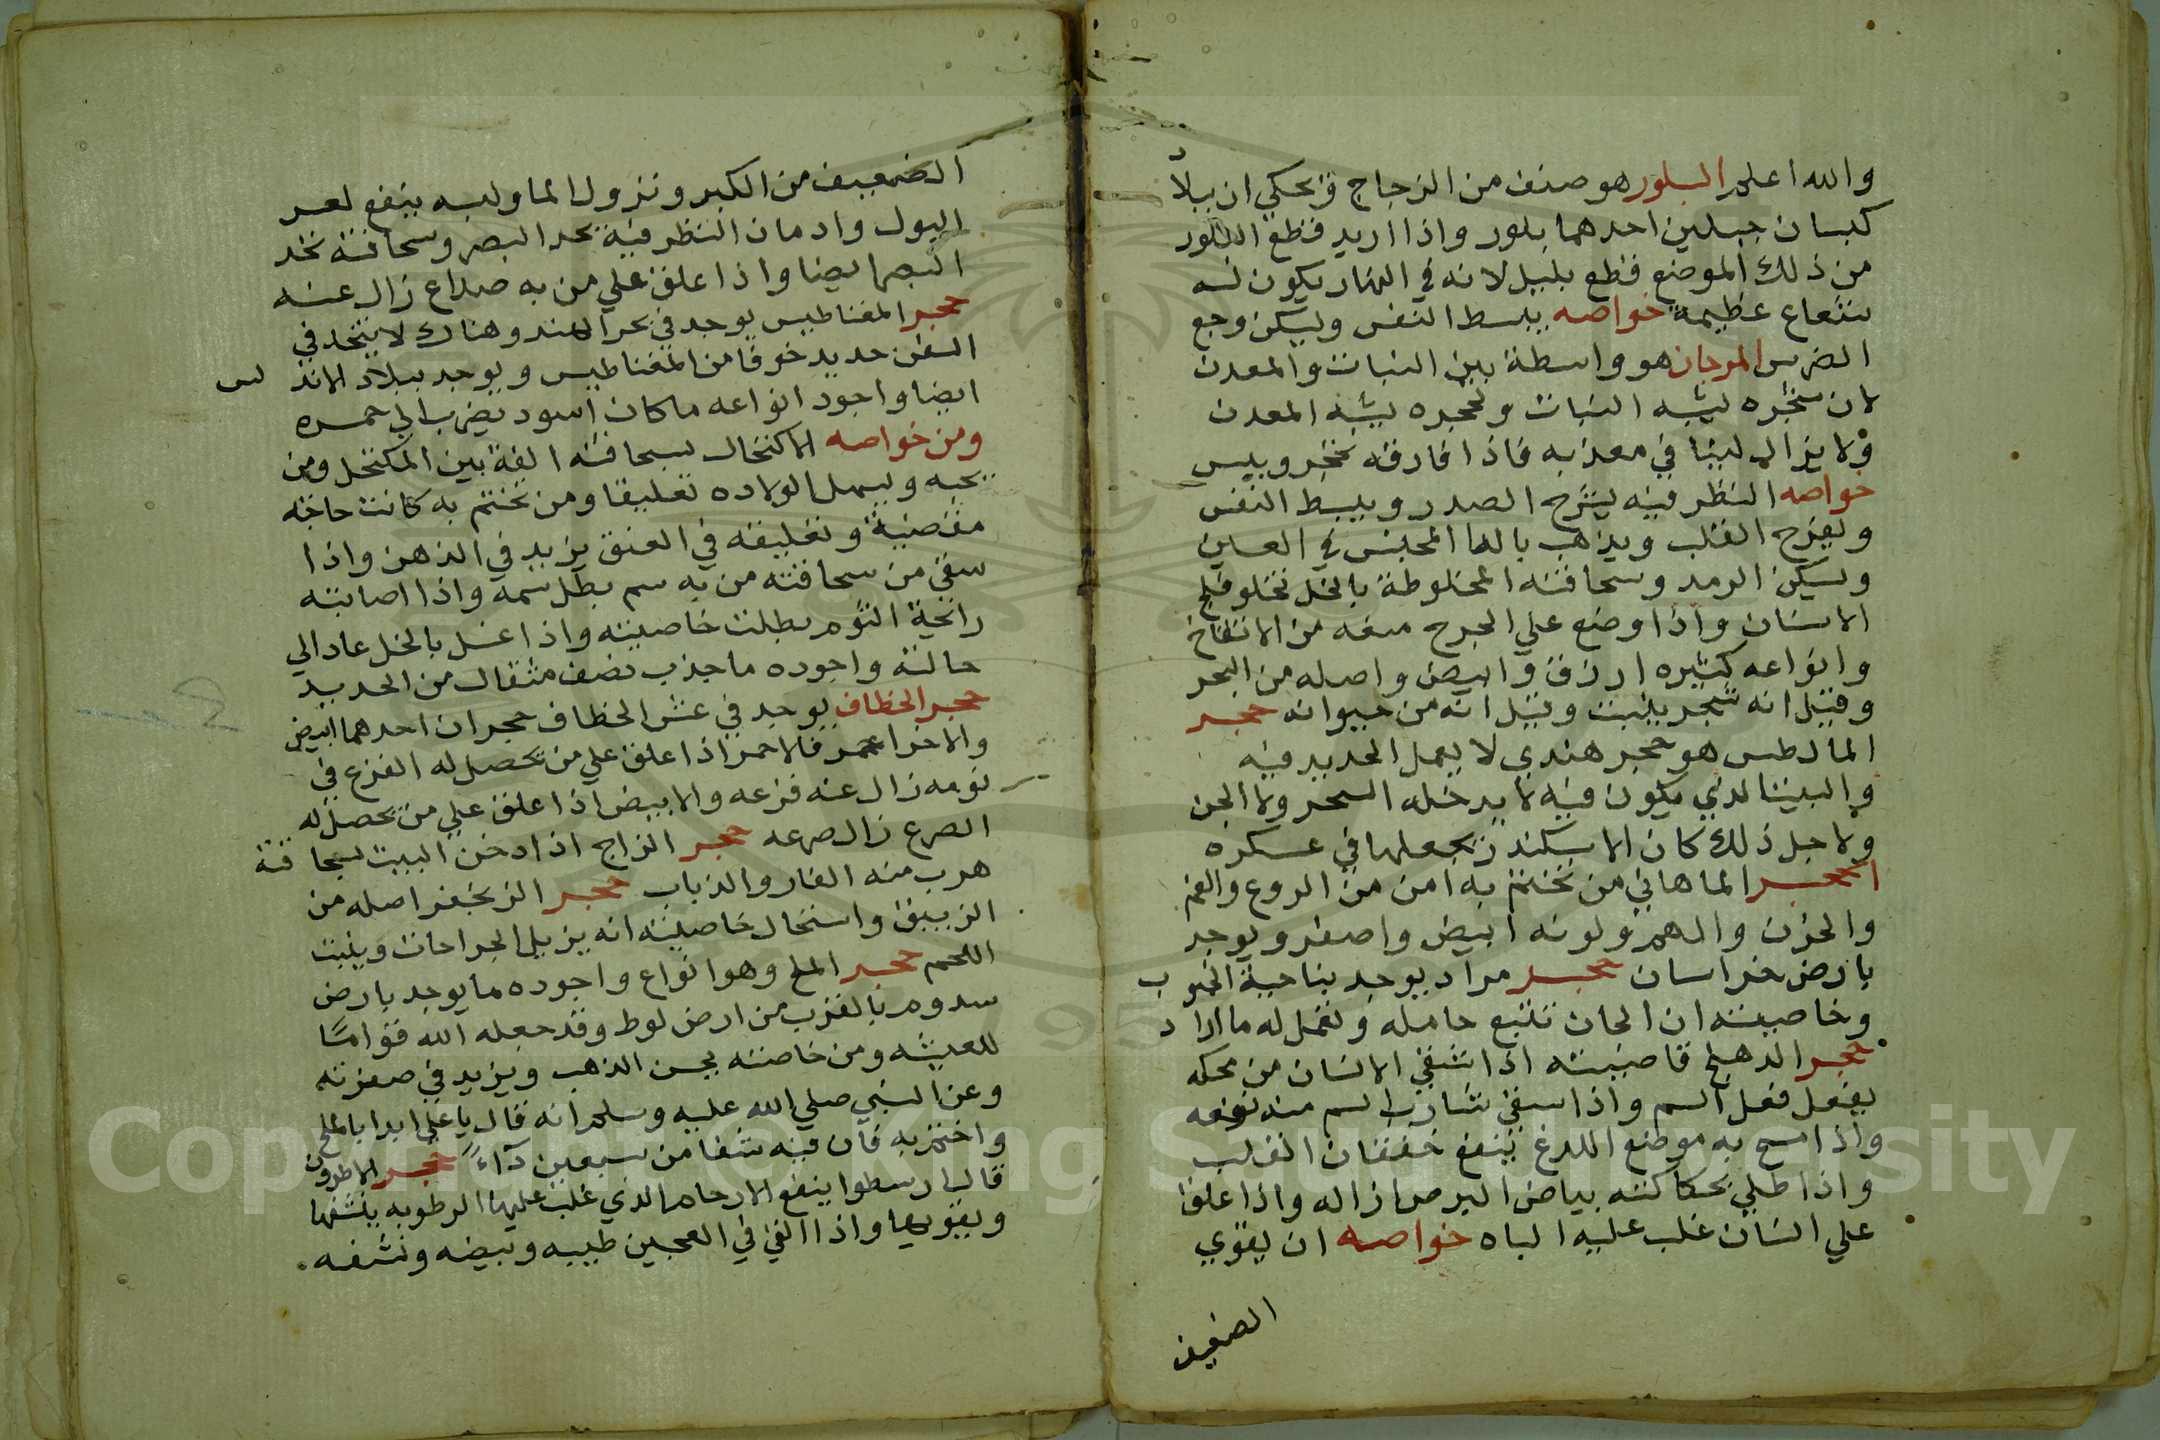 والله اعلم البلور هو صنف من الزجاج قيل يحكي ان ببلاد
كيسان جبلين احدهما بلور واذا اريد قطع البلور
من ذلك الموضع قطع بليل لانه في النهار يكون له
شعاع عظيمة خواصه يبسط النفس ويسكن وجع
الضرس المرجان هو واسطة بين النبات والمعدن
لان شجره يشبه النبات وتحجره يشبه المعدن
ولا يزال لينا في معدنه فاذا فارقه تحجر ويبس
خواصه النظر فيه يشرح الصدر ويبسط النفس
ويفرح القلب ويذهب بالما المحتبس في العين
ويسكن الرمد وسحاقته المخلوطة بالخل تجلو قلح
الاسنان واذا وضع علي الجرح منعه من الانتفاخ
وانواعه كثيره ازرق وابيض واصله من البحر
وقيل انه شجر ينبت وقيل انه من حيوانه حجر
هو حجر هندي لا يعمل الحديد فيه
والبيت الذي يكون فيه لا يدخله السحر ولا الجن
ولاجل ذلك كان الاسكندر يجعلها في عسكره
الحجر الماهاني من تختم به امن من الروع والغم
والحزن والهم ولونه ابيض واصفر ويوجد
بارض خراسان حجر مراد يوجد بناحية الجنوب
وخاصيته ان الجان تتبع حامله وتعمل له ما اراد
حجر الدهنج خاصيته اذا سقي الانسان من محكه
يفعل فعل السم واذا سقي شارب السم منه نفعه
واذا مسح به موضع اللدغ ينفع خفقان القلب
واذا طلي بحكاكته بياض البرص ازاله واذا علق
علي انسان غلب عليه الباه خواصه ان يقوي
الضعيف
الضعيف من الكبر ونزول الما ولبسه ينفع لعسر
البول وادمان النظر فيه يحد البصر وسحاقته تحد
البصر ايضا واذا علق علي من به صداع زال عنه
حجر المغناطيس يوجد في بحر الهند وهناك لا يتخذ في
السفن حديد خوفا من المغناطيس ويوجد ببلاد الاندلس
ايضا واجود انواعه ما كان اسود يضرب الي حمره
ومن خواصه الاكتحال بسحاقته الفة بين المكتحل ومن
يحبه ويسهل الولاده تعليقا ومن تختم به كانت حاجته
مقضية وتعليقه في العنق يزيد في الذهن واذا
سقي من سحاقته من به سم بطل سمه واذا اصابته
رائحة الثوم بطلت خاصيته واذا غسل بالخل عاد الي
حالته واجوده ما جذب نصف مثقال من الحديد
حجر الخطاف يوجد في عش الخطاف حجران احدهما ابيض
والاخر احمر فالاحمر اذا علق علي من يحصل له الفزع في
نومه زال عنه فزعه والابيض اذا علق علي من يحصل له
الصرع زال صرعه حجر الزاج اذا دخن البيت بسحاقته
هرب منه الفار والذباب حجر الزنجفر اصله من
الزيبق واستحال خاصيته انه يزيل الجراحات وينبت
اللحم حجر الملح وهو انواع واجوده ما يوجد بارض
سدوم بالقرب من ارض لوط وقد جعله الله قواما
للعيشه ومن خاصته يحسن الذهب ويزيد في صفرته
وعن النبي صلي الله عليه وسلم انه قال يا علي ابدا بالملح
واختم به فان فيه شفا من سبعين داء حجر الاطرون
قال ارسطوا ينفع الارحام الذي غلب عليها الرطوبه ينشفها
ويقويها واذا القي في العجين طيبه وبيضه ونشفه